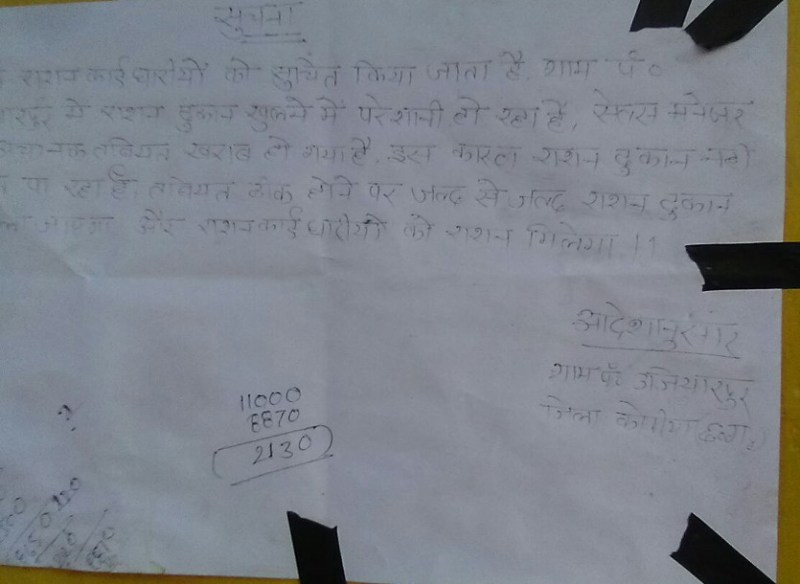 सुचना
राशन कार्ड धारीयों को सुचित किया जाता है. ग्राम पं०
में राशन दुकान खुलने में परेशानी हो रहा है, सेल्स मनेजर
तबियत खराब हो गया है. इस कारण राशन दुकान नही
पा रहा है, तबियत ठीक होने पर जल्द से जल्द राशन दुकान
जाएगा और राशन कार्ड धारीयों को राशन मिलेगा ।।
आदेशानुसार
ग्राम पं० उजियारपुर
जिला कोरीया (छ०ग०)
11000
8870
2130